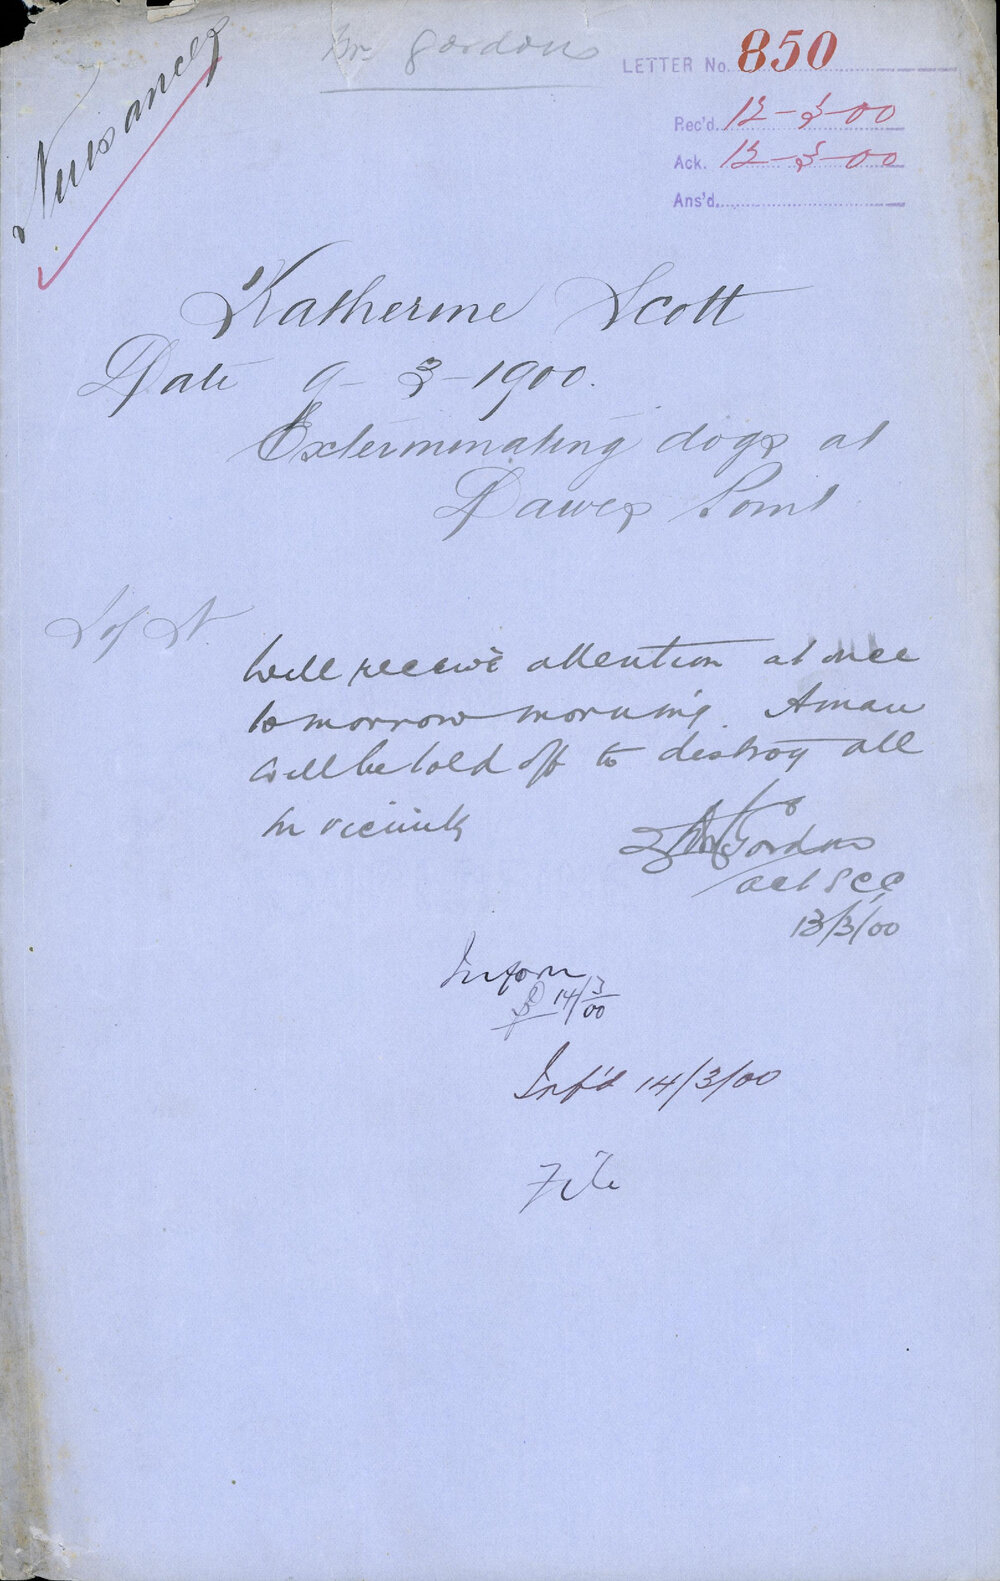 Nuisances
Mr Gordons
LETTER No. 850
Rec'd. 12-3-00
Ack. 12-3-00
Ans'd.
Katherine Scott
Date 9-3-1900.
Exterminating dogs at
Dawes Point
Will receive attention at once
tomorrow morning. A man
will be told off to destroy all
in vicinity
Gordon
act S C C
13/3/00
Inform
14/3/00
Inf'd 14/3/00
File